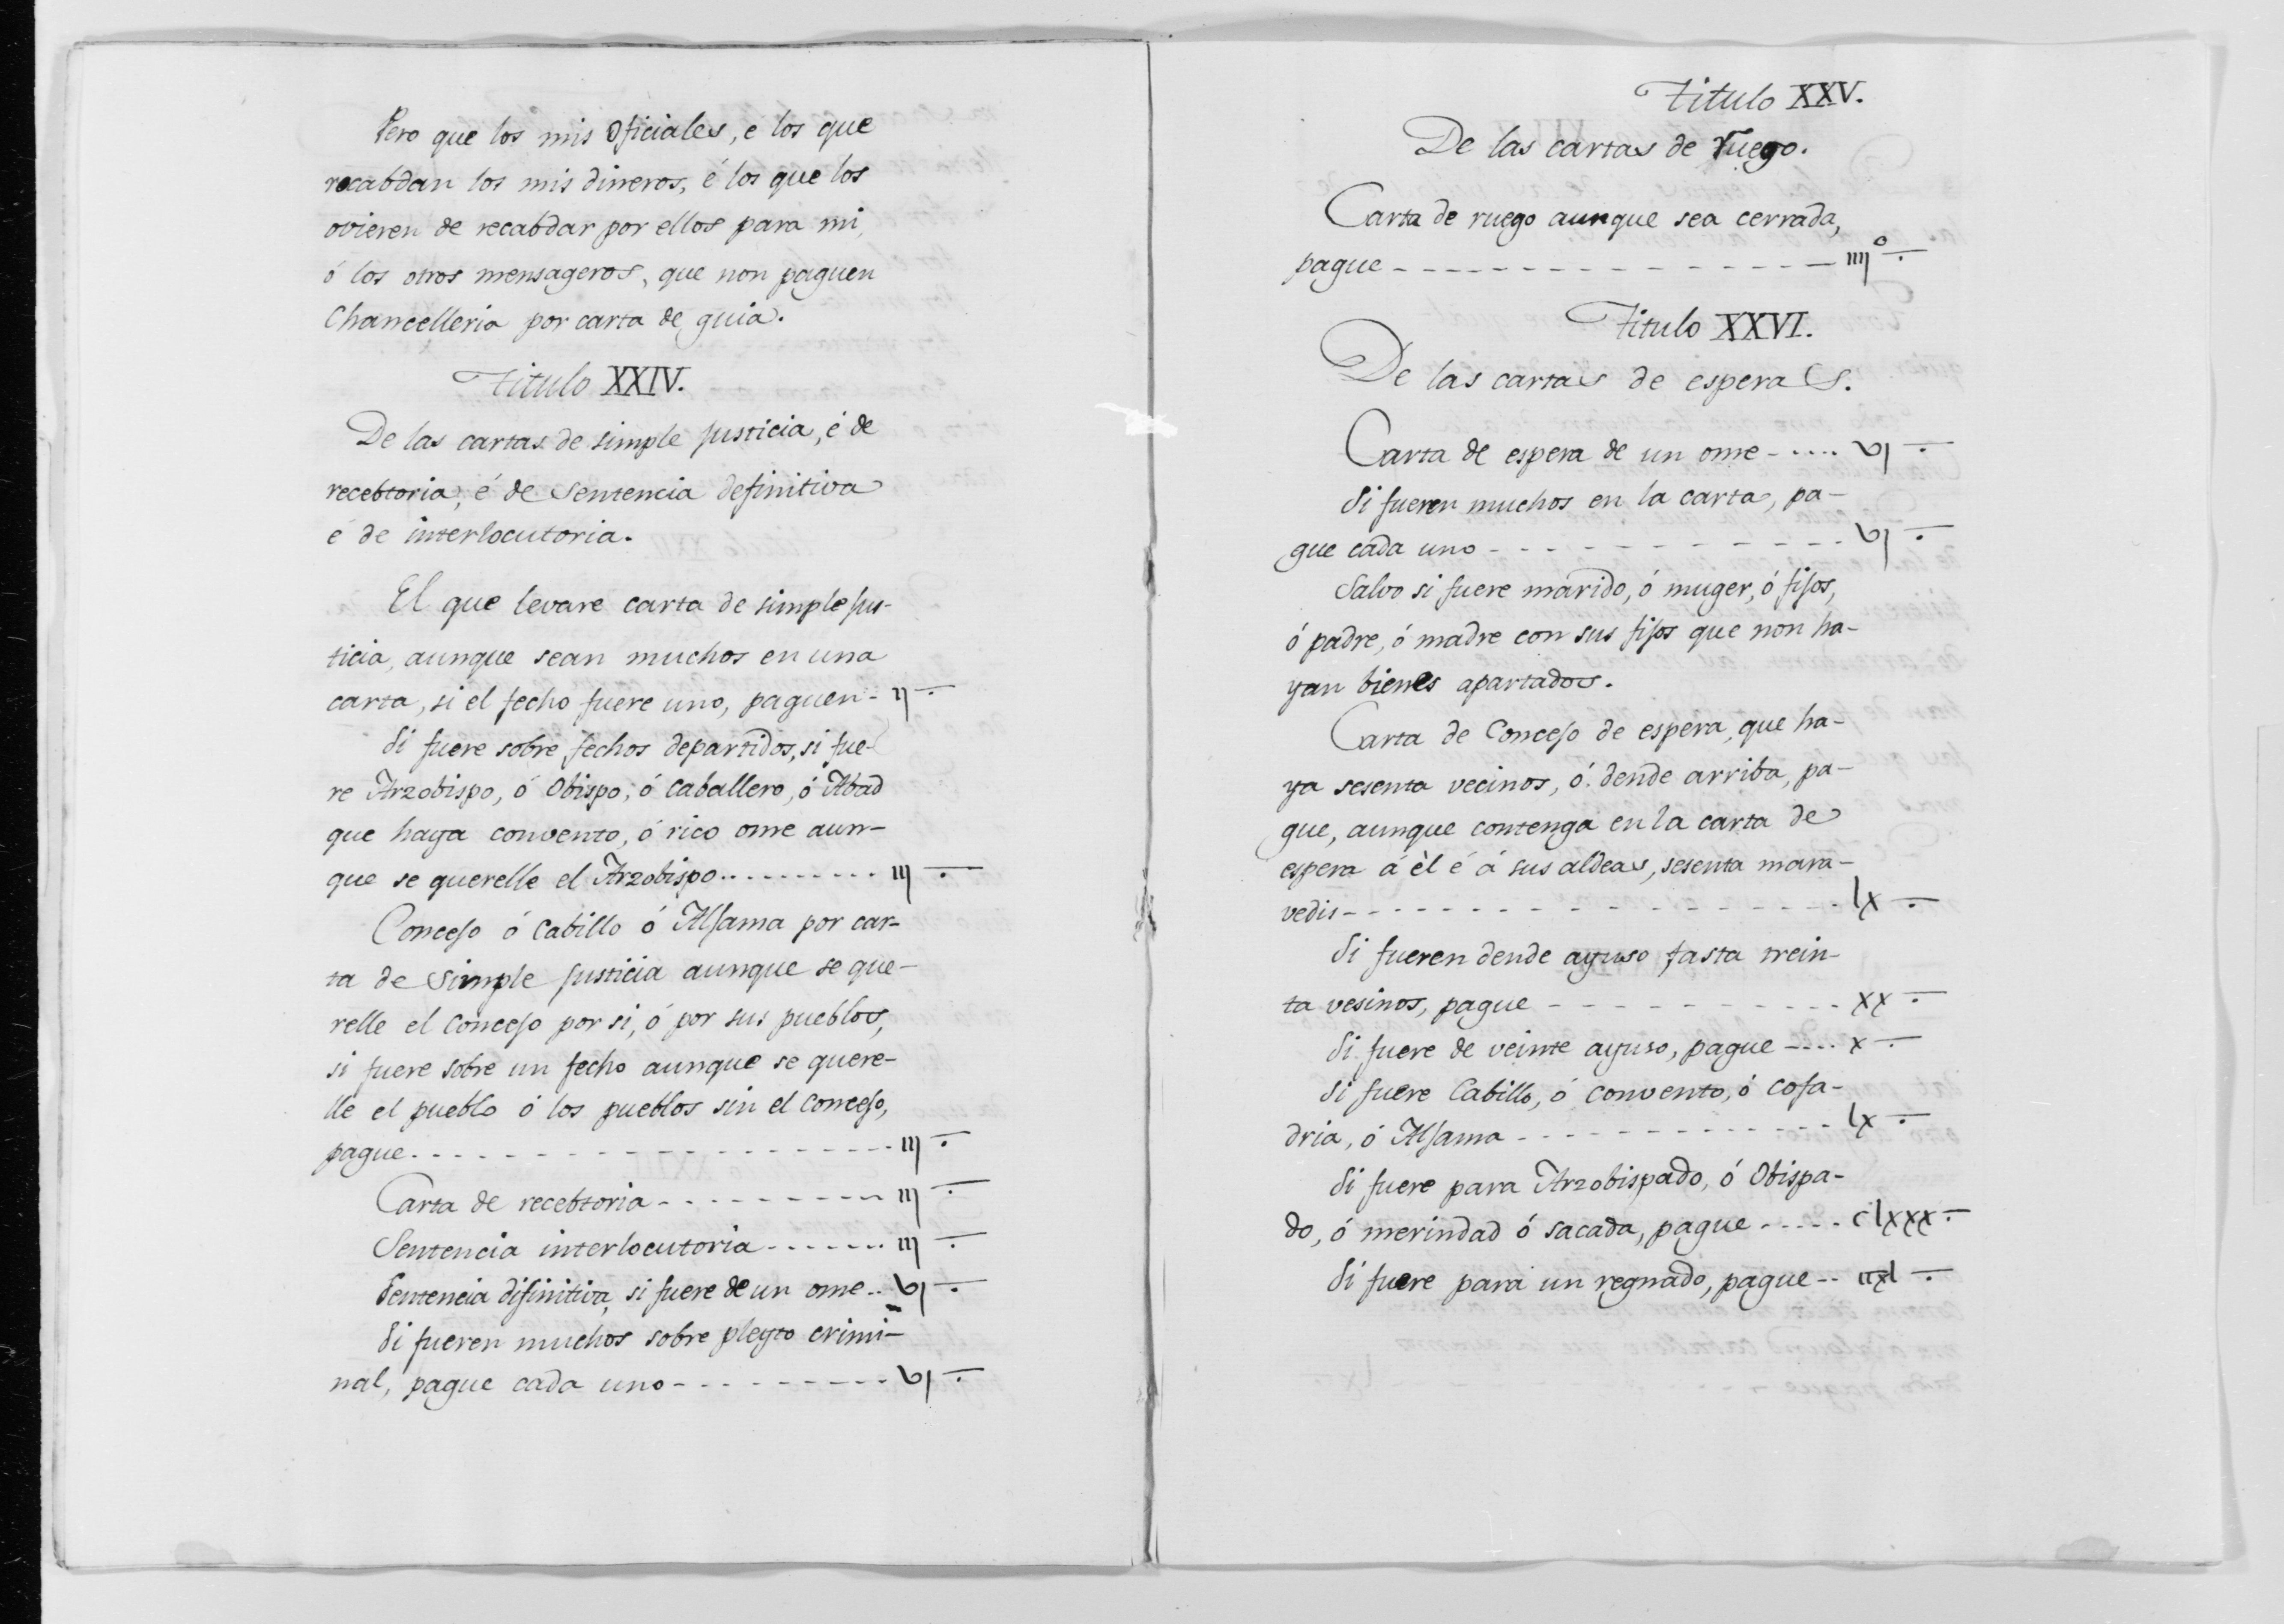 Pero que los mis Oficiales, é los que
recabdan los mis dineros, é los que los
ovieren de recabdar por ellos para mi,
ó los otros mensageros, que non paguen
Chancelleria por carta de guia.
Titulo XXIV.
De las cartas de simple justicia, é de
recebtoria, é de Sentencia definitiva
é de interlocutoria.
El que levare carta de simple jus-
ticia, aunque sean muchos en una
carta, si el fecho fuere uno, paguen - ij
Si fuere sobre fechos departidos, si fue-
re Arzobispo, ó Obispo, ó Caballero, ó Abad
que haya convento, ó rico ome aun-
que se querelle el Arzobispo .......... iij
Concejo ó Cabillo ó Aljama por car-
ta de Simple justicia aunque se que-
relle el Concejo por si, ó por sus pueblos,
si fuere sobre un fecho aunque se quere-
lle el pueblo ó los pueblos sin el Concejo,
pague - - - - - - - - - - iij
Carta de recebtoria - - - - - - - iij
Sentencia interlocutoria - - - - - iij
Sentencia difinitiva, si fuere de un ome .. vj
Si fueren muchos sobre pleyto crimi-
nal, pague cada uno - - - - - - - vj
Titulo XXV.
De las cartas de ruego.
Carta de ruego aunque sea cerrada,
pague - - - - - - - - - - iiijº
Titulo XXVI.
De las cartas de esperas.
Carta de espera de un ome - .... vj
Si fueren muchos en la carta, pa-
gue cada uno - - - - - - - - - vj
Salvo si fuere marido, ó muger, ó fijos,
ó padre, ó madre con sus fijos que non ha-
yan bienes apartados.
Carta de Concejo de espera, que ha-
ya sesenta vecinos, ó dende arriba, pa-
gue, aunque contenga en la carta de
espera á èl é á sus aldeas, sesenta mara-
vedis - - - - - - - - - - lx
Si fueren dende ayuso fasta trein-
ta vesinos, pague - - - - - - - - xx
Si fuere de veinte ayuso, pague - .... x
Si fuere Cabillo, ó Convento, ó cofa-
dria, ó Aljama - - - - - - - - - lx
Si fuere para Arzobispado, ó Obispa-
do, ó merindad ó sacada, pague - - - - clxxx
Si fuere para un regnado, pague - -